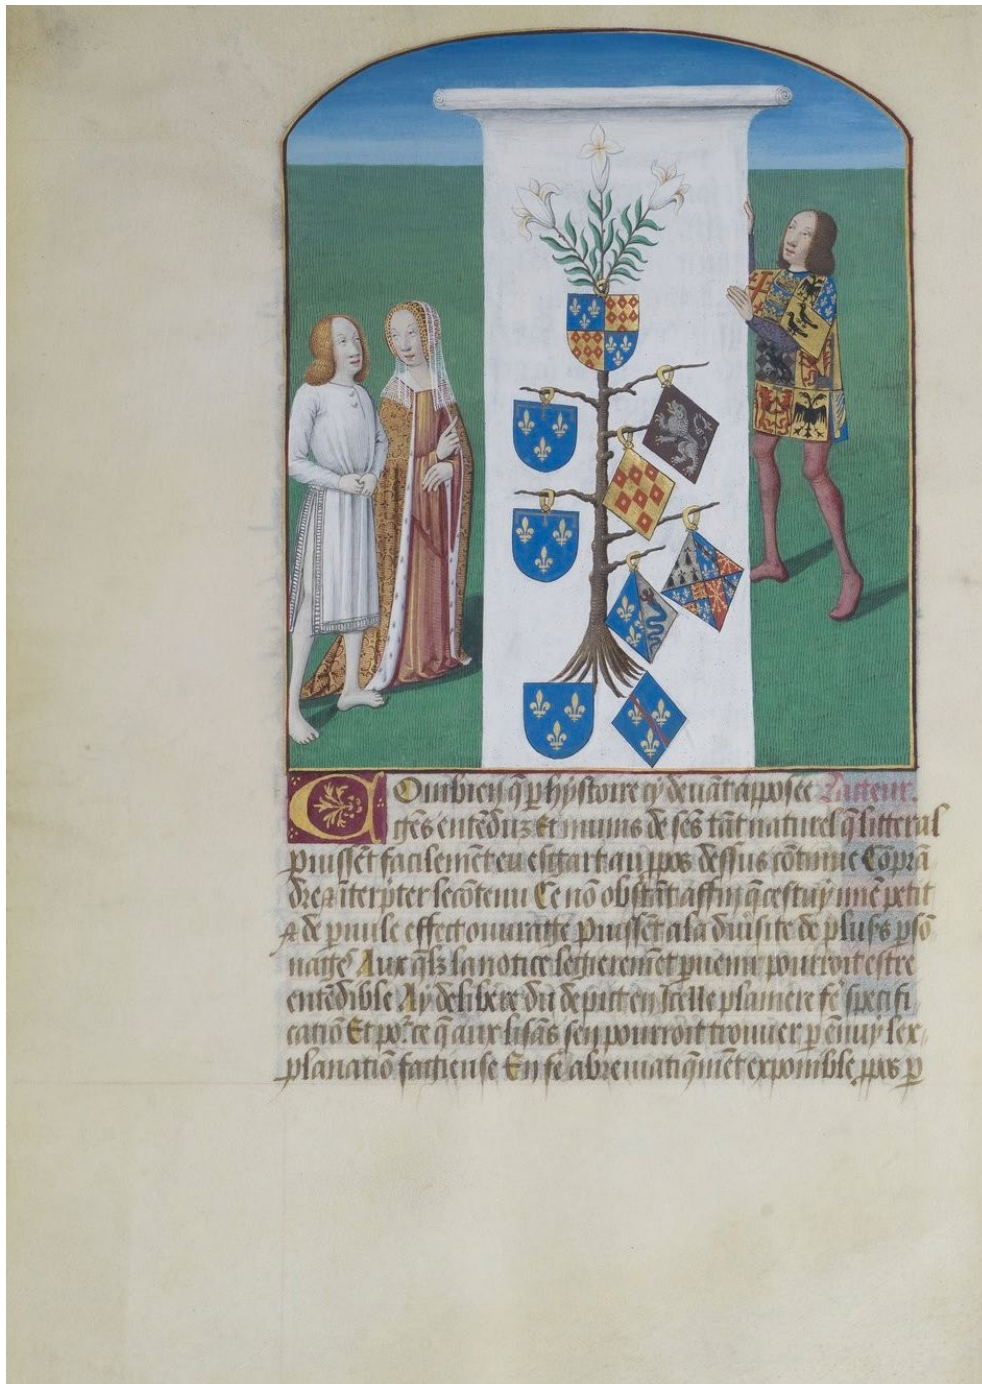 Combien q̃ p hystoire cy deuãt apposee Lacteur.
gẽs entẽduz Et munis de sẽs tãt naturel q̃ litteral
puissẽt facilemẽt eu esgart au ppos dessus cõtinue Cõprã
dre interpter le cõtenu Ce nõ obstãt affin q̃ cestuy miẽ petit
de puile effect ouuratge Puissẽt a la diuisite de pluss psõ
nages Aux q̃lz la notice legieremẽt puenir pourroit estre
entẽdible Ay delibere du depict en Icelle planiere fe specifi
catiõ Et po.ce q̃ aux lisãs sen pourroit trouuer p ẽnuy lex
planatiõ fatgieuse En fe abreuiatiq̃mẽt exponible ppos p